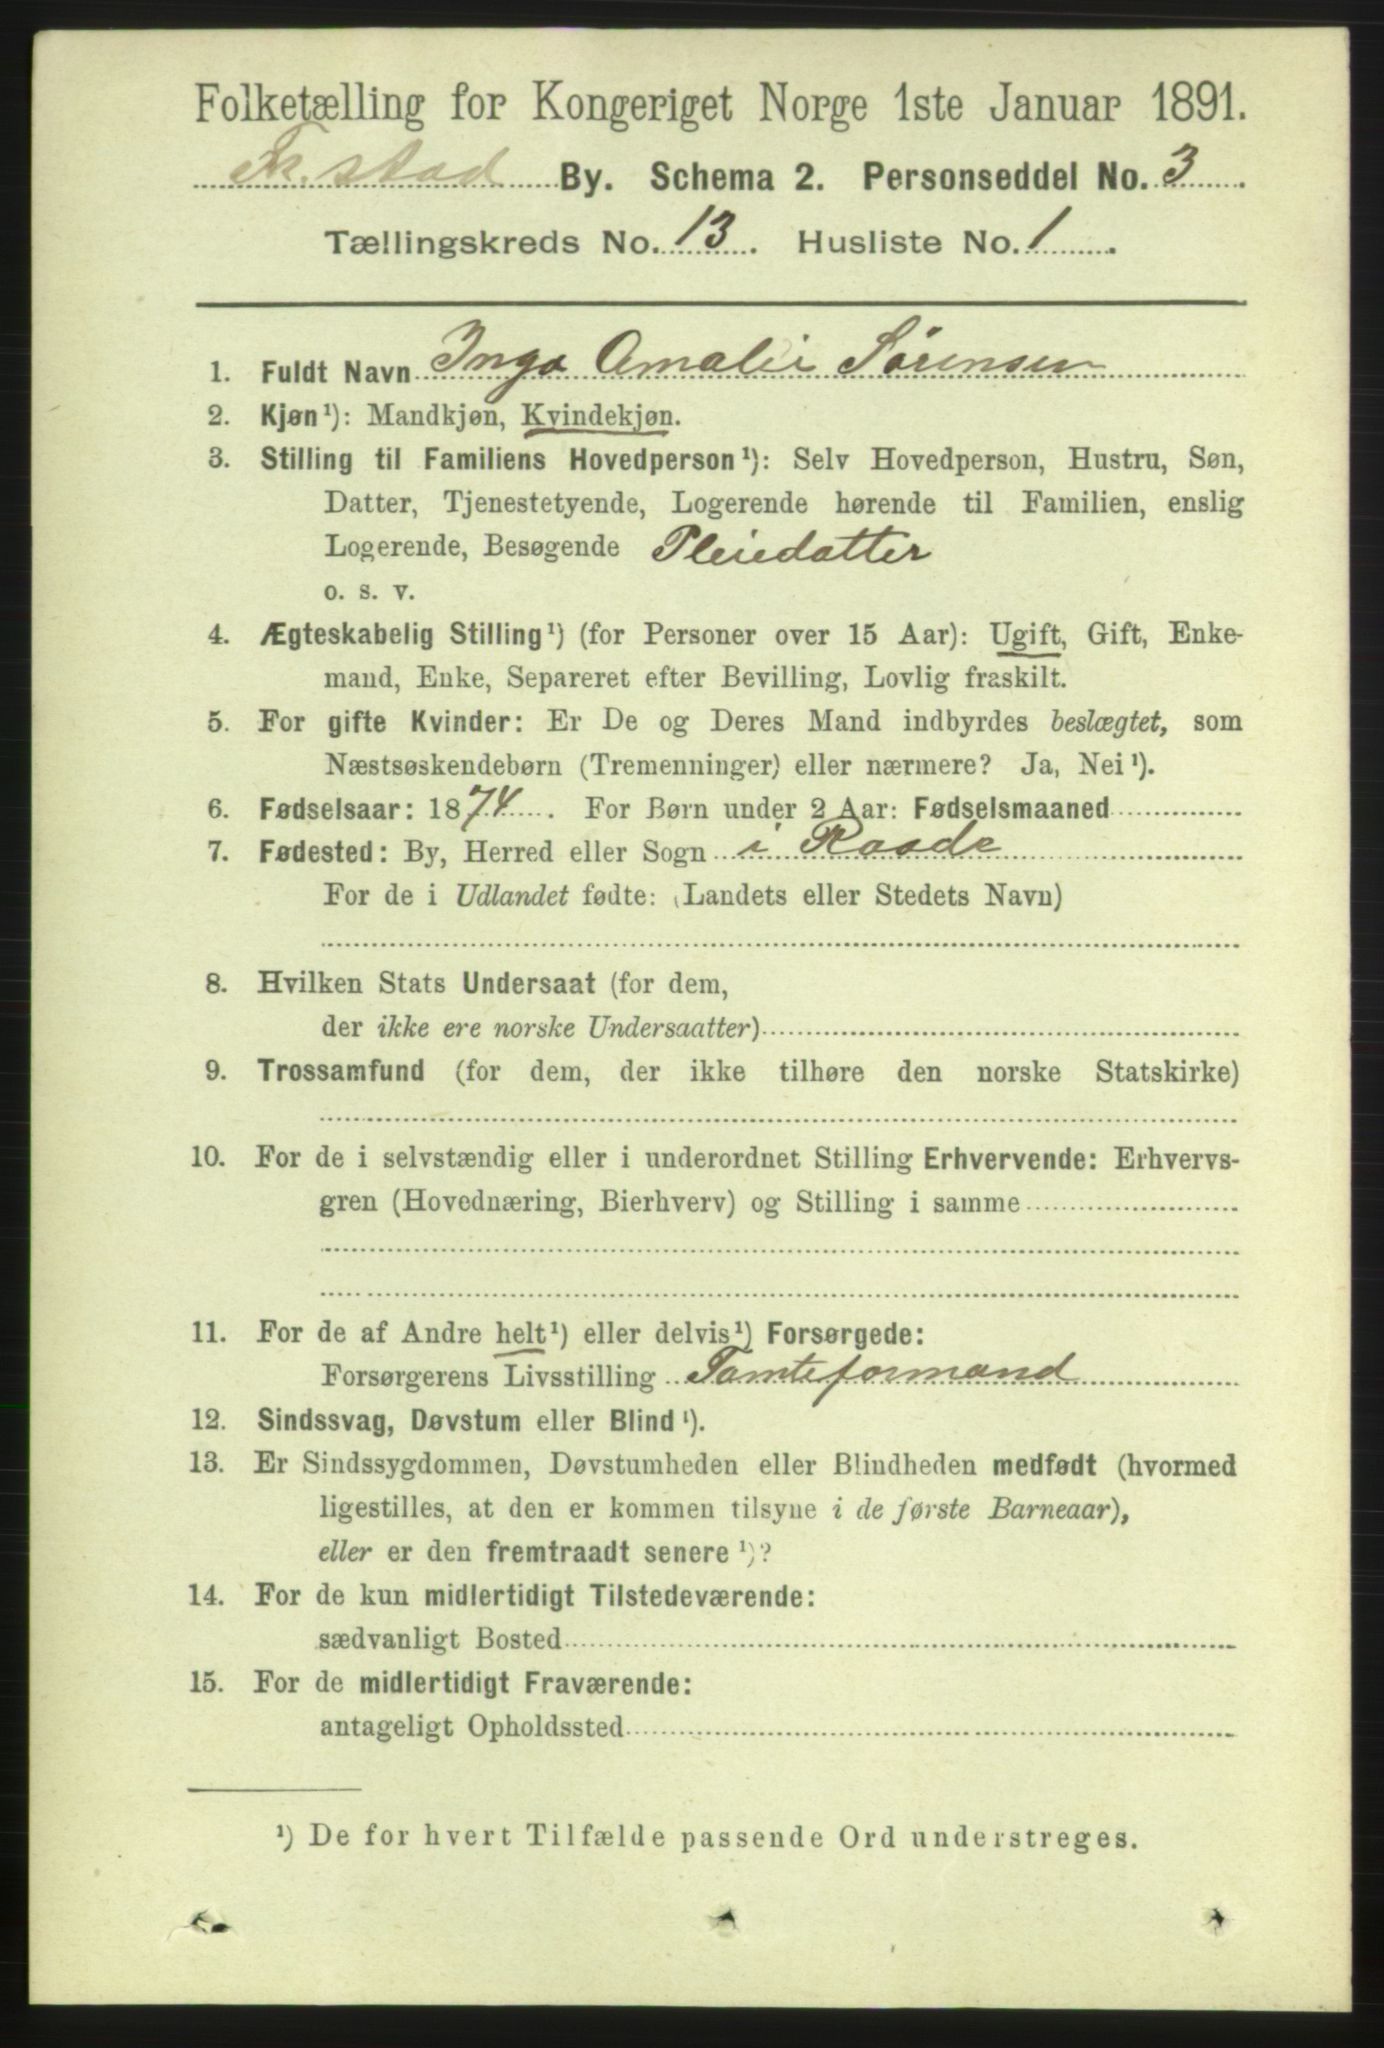 Folketælling for Kongeriget Norge 1ste Januar 1891.
Fr.stad By. Schema 2. Personseddel No. 3
Tællingskreds No. 13. Husliste No. 1.
1. Fuldt Navn Inga Amalie Sørensen
2. Kjøn¹): Mandkjøn, Kvindekjøn.
3. Stilling til Familiens Hovedperson¹): Selv Hovedperson, Hustru, Søn,
Datter, Tjenestetyende, Logerende hørende til Familien, enslig
Logerende, Besøgende Pleiedatter
o. s. v.
4. Ægteskabelig Stilling¹) (for Personer over 15 Aar): Ugift, Gift, Enke-
mand, Enke, Separeret efter Bevilling, Lovlig fraskilt.
5. For gifte Kvinder: Er De og Deres Mand indbyrdes beslægtet, som
Næstsøskendebørn (Tremenninger) eller nærmere? Ja, Nei¹).
6. Fødselsaar: 1874. For Børn under 2 Aar: Fødselsmaaned
7. Fødested: By, Herred eller Sogn i Raade
For de i Udlandet fødte: (Landets eller Stedets Navn)
8. Hvilken Stats Undersaat (for dem,
der ikke ere norske Undersaatter)
9. Trossamfund (for dem, der ikke tilhøre den norske Statskirke)
10. For de i selvstændig eller i underordnet Stilling Erhvervende: Erhvervs-
gren (Hovednæring, Bierhverv) og Stilling i samme
11. For de af Andre helt¹) eller delvis¹) Forsørgede:
Forsørgerens Livsstilling Tomteformand
12. Sindssvag, Døvstum eller Blind¹).
13. Er Sindssygdommen, Døvstumheden eller Blindheden medfødt (hvormed
ligestilles, at den er kommen tilsyne i de første Barneaar),
eller er den fremtraadt senere¹)?
14. For de kun midlertidigt Tilstedeværende:
sædvanligt Bosted
15. For de midlertidigt Fraværende:
antageligt Opholdssted
¹) De for hvert Tilfælde passende Ord understreges.